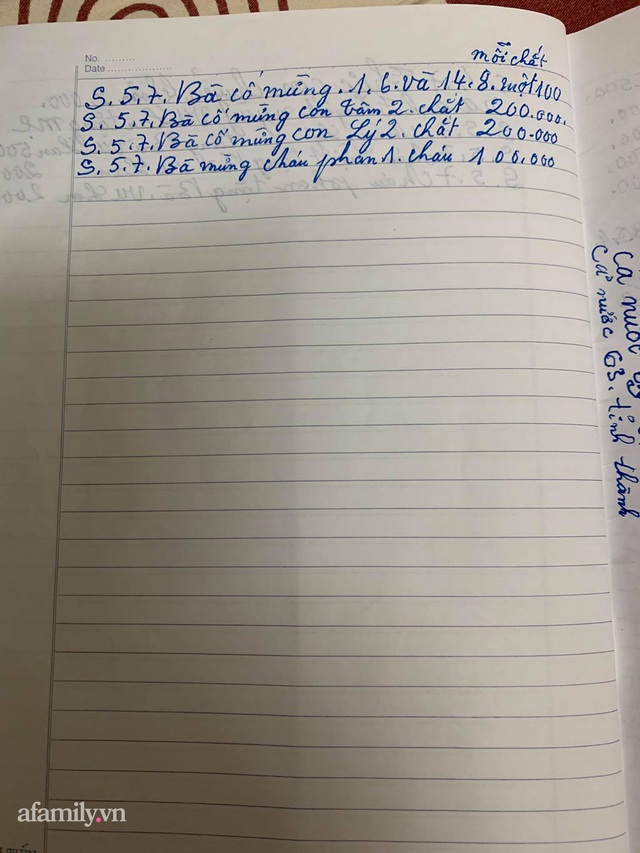 No. ..........
Date ....................
mỗi chắt
S. 5.7. Bà cố mừng. 1. 6. và 14. 8. một 100
S. 5.7. Bà cố mừng con Tâm 2. chắt 200.000.
S. 5.7. Bà cố mừng con Lý 2. chắt 200.000
S. 5.7. Bà mừng cháu phan 1. cháu 100.000
Cả nước 63. tỉnh thành
afamily.vn